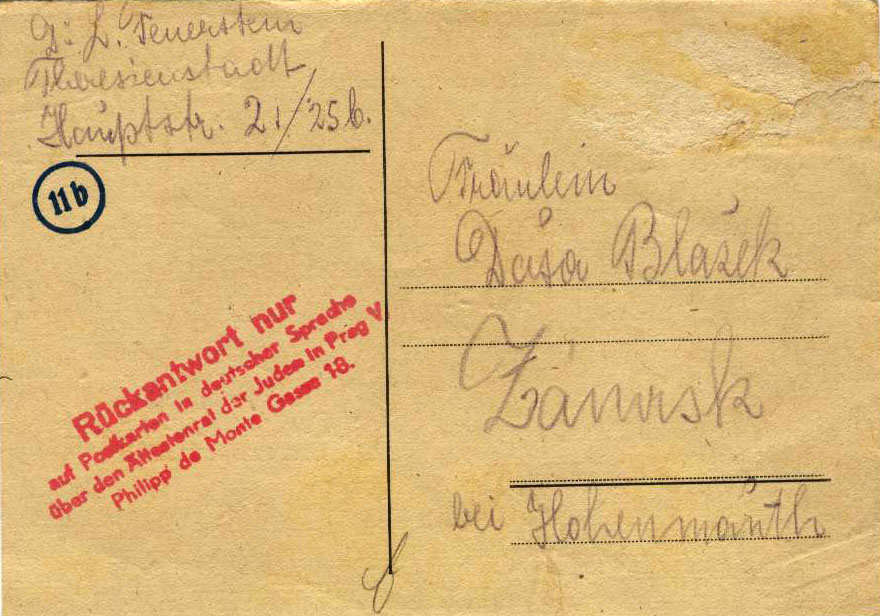 G: L. Feuerstein
Theresienstadt
Hauptstr. 21/25b.
11b
Rückantwort nur
auf Postkarten in deutscher Sprache
über den Ältestenrat der Juden in Prag V
Philipp de Monte Gasse 18.
Fräulein
Dáša Blažek
Zámrsk
bei Hohenmäuth